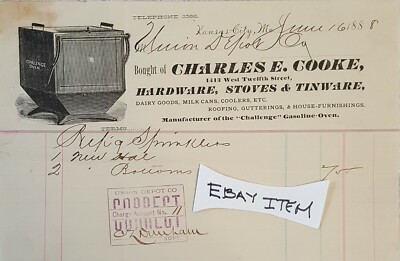 TELEPHONE 3286.
Kansas City, M June 16 1888
Union Depot Co
Bought of CHARLES E. COOKE,
1413 West Twelfth Street,
HARDWARE, STOVES & TINWARE,
DAIRY GOODS, MILK CANS, COOLERS, ETC.
ROOFING, GUTTERINGS, & HOUSE-FURNISHINGS.
Manufacturer of the "Challenge" Gasoline-Oven.
CHALLENGE
OVEN
TERMS
Rep'g Sprinklers
1 New
2 " Bottoms 75
UNION DEPOT CO.
CORRECT
Charge Account No. 11
SUPT.
EBAY ITEM